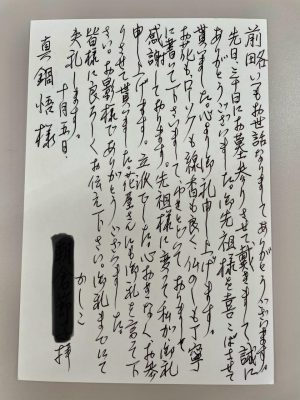 前略 いつもお世話になりましてありがとうございます。
先日、三十日にお墓参りさせて戴きまして誠に
ありがとうございました。御先祖様を喜こばさせて
貰いました。心より御礼申し上げます。
お花もローソクも線香も良く、仏のしも丁寧
に書いて下さいまして ゆきとどいて おりまして
感謝しております。先祖様に変って私が御礼
申し上げます。立派でした。心おきなくお参
りさせて貰いました。花屋さんにも御礼を言って下
さい。お蔭様でありがとうございました。
皆様に良ろしくお伝え下さい。御礼までにて
失礼します。
かしこ
十月五日
拝
真鍋悟様